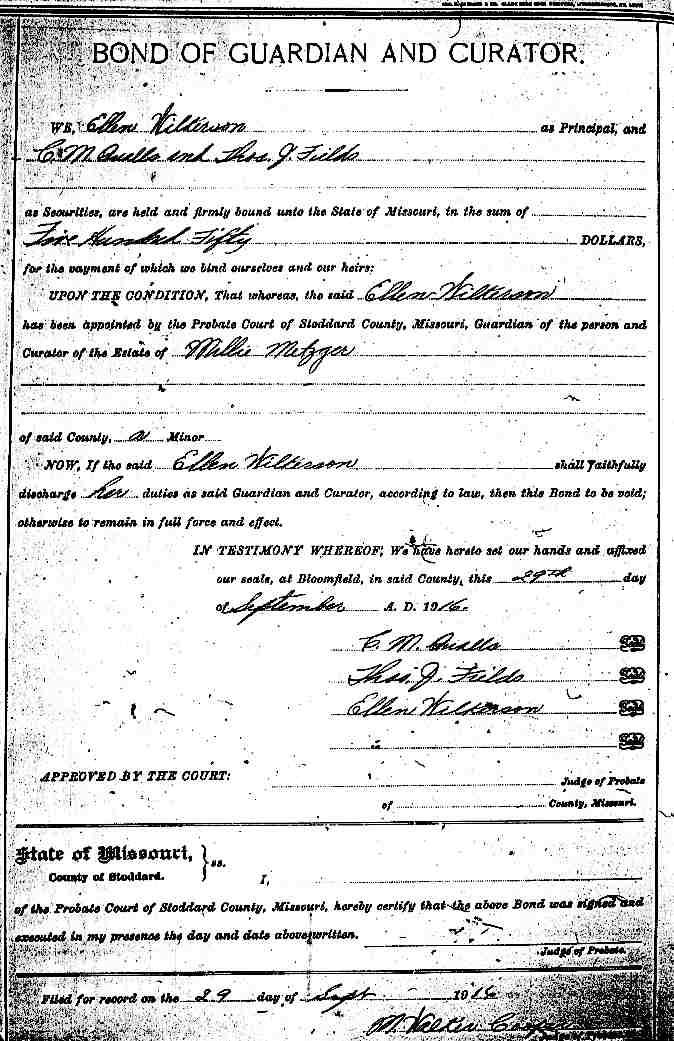 BOND OF GUARDIAN AND CURATOR.
WE, Ellen Wilkerson as Principal, and
C. M. Qualls and Thos. J. Fields
as Securities, are held and firmly bound unto the State of Missouri, in the sum of
Five Hundred Fifty DOLLARS,
for the payment of which we bind ourselves and our heirs:
UPON THE CONDITION, That whereas, the said Ellen Wilkerson
has been appointed by the Probate Court of Stoddard County, Missouri, Guardian of the person and
Curator of the Estate of Millie Metzger
of said County, a Minor
NOW, If the said Ellen Wilkerson shall faithfully
discharge her duties as said Guardian and Curator, according to law, then this Bond to be void;
otherwise to remain in full force and effect.
IN TESTIMONY WHEREOF, We have hereto set our hands and affixed
our seals, at Bloomfield, in said County, this 29th day
of September A. D. 1916.
C. M. Qualls Seal
Thos. J. Fields Seal
Ellen Wilkerson Seal
Seal
APPROVED BY THE COURT:
Judge of Probate
of County, Missouri.
State of Missouri, } ss.
County of Stoddard. I,
of the Probate Court of Stoddard County, Missouri, hereby certify that the above Bond was signed and
executed in my presence the day and date above written.
Judge of Probate.
Filed for record on the 29 day of Sept 1916
M. Walker Cooper
Judge of Probate